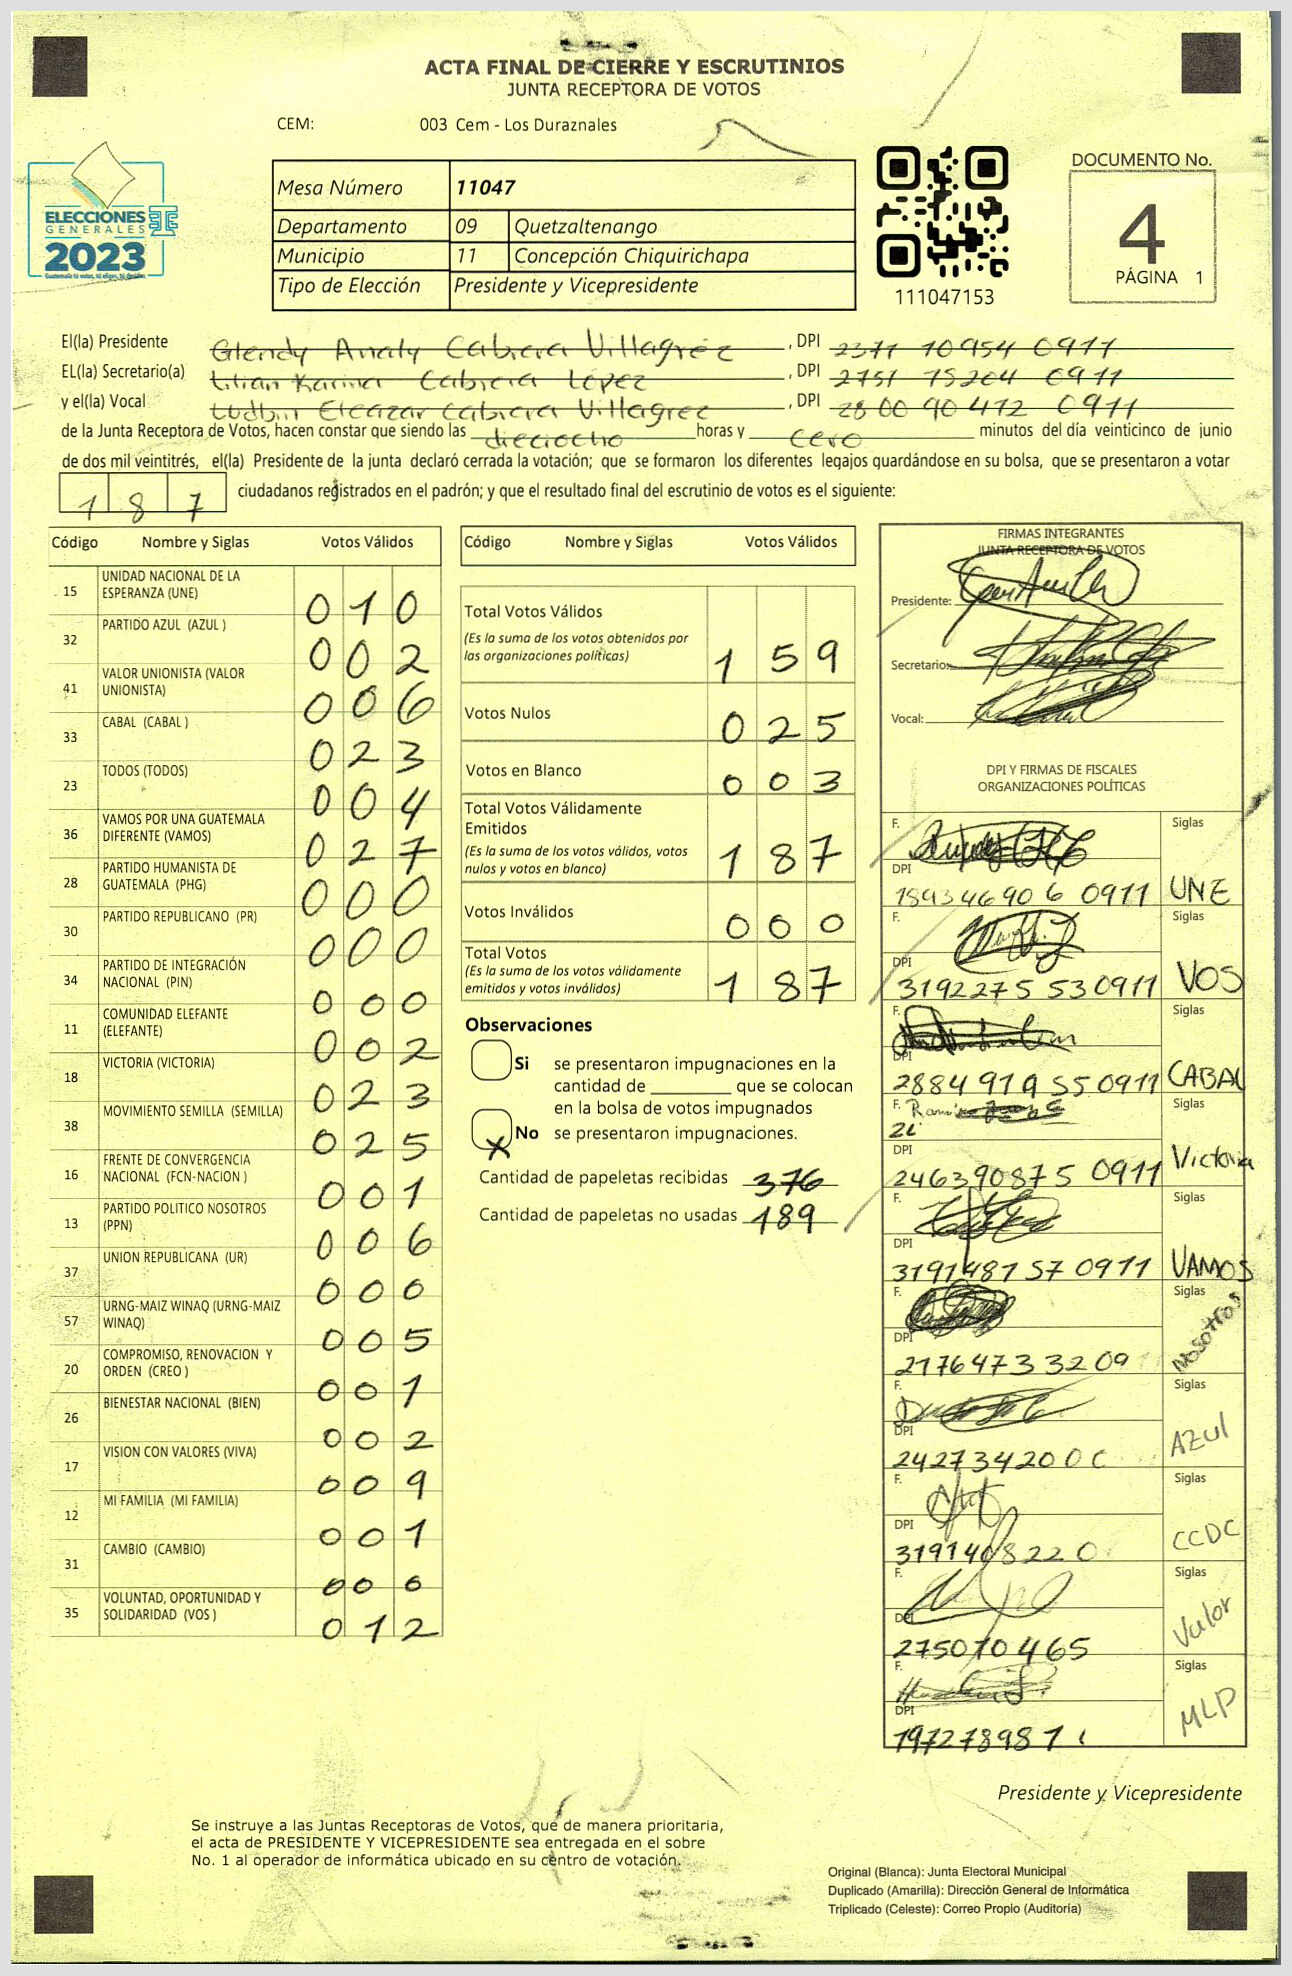 ACTA FINAL DE CIERRE Y ESCRUTINIOS
JUNTA RECEPTORA DE VOTOS
CEM: 003 Cem - Los Duraznales
ELECCIONES
GENERALES
2023
Mesa Número 11047
Departamento 09 Quetzaltenango
Municipio 11 Concepción Chiquirichapa
Tipo de Elección Presidente y Vicepresidente
111047153
DOCUMENTO No.
4
PÁGINA 1
El(la) Presidente Glendy Analy Cabrera Villagrez, DPI 2371 10954 0911
EL(la) Secretario(a) Lilian Karina Cabrera Lopez, DPI 2751 75204 0911
y el(la) Vocal Ludbin Eleazar Cabrera Villagrez, DPI 2800 90412 0911
de la Junta Receptora de Votos, hacen constar que siendo las dieciocho horas y cero minutos del día veinticinco de junio
de dos mil veintitrés, el(la) Presidente de la junta declaró cerrada la votación; que se formaron los diferentes legajos guardándose en su bolsa, que se presentaron a votar
187 ciudadanos registrados en el padrón; y que el resultado final del escrutinio de votos es el siguiente:
Código Nombre y Siglas Votos Válidos
15 UNIDAD NACIONAL DE LA ESPERANZA (UNE) 010
32 PARTIDO AZUL (AZUL ) 002
41 VALOR UNIONISTA (VALOR UNIONISTA) 006
33 CABAL (CABAL ) 023
23 TODOS (TODOS) 004
36 VAMOS POR UNA GUATEMALA DIFERENTE (VAMOS) 027
28 PARTIDO HUMANISTA DE GUATEMALA (PHG) 000
30 PARTIDO REPUBLICANO (PR) 000
34 PARTIDO DE INTEGRACIÓN NACIONAL (PIN) 000
11 COMUNIDAD ELEFANTE (ELEFANTE) 002
18 VICTORIA (VICTORIA) 023
38 MOVIMIENTO SEMILLA (SEMILLA) 025
16 FRENTE DE CONVERGENCIA NACIONAL (FCN-NACION ) 001
13 PARTIDO POLITICO NOSOTROS (PPN) 006
37 UNION REPUBLICANA (UR) 000
57 URNG-MAIZ WINAQ (URNG-MAIZ WINAQ) 005
20 COMPROMISO, RENOVACION Y ORDEN (CREO ) 001
26 BIENESTAR NACIONAL (BIEN) 002
17 VISION CON VALORES (VIVA) 009
12 MI FAMILIA (MI FAMILIA) 001
31 CAMBIO (CAMBIO) 000
35 VOLUNTAD, OPORTUNIDAD Y SOLIDARIDAD (VOS ) 012
Código Nombre y Siglas Votos Válidos
Total Votos Válidos 159
(Es la suma de los votos obtenidos por
las organizaciones políticas)
Votos Nulos 025
Votos en Blanco 003
Total Votos Válidamente
Emitidos 187
(Es la suma de los votos válidos, votos
nulos y votos en blanco)
Votos Inválidos 000
Total Votos 187
(Es la suma de los votos válidamente
emitidos y votos inválidos)
Observaciones
Si se presentaron impugnaciones en la
cantidad de ________ que se colocan
en la bolsa de votos impugnados
X No se presentaron impugnaciones.
Cantidad de papeletas recibidas 376
Cantidad de papeletas no usadas 189
FIRMAS INTEGRANTES
JUNTA RECEPTORA DE VOTOS
Presidente:
Secretario:
Vocal:
DPI Y FIRMAS DE FISCALES
ORGANIZACIONES POLÍTICAS
F. Siglas
DPI 189346906 0911 UNE
F. Siglas
DPI 3192275 530911 VOS
F. Siglas
DPI 2884 919 550911 CABAL
F. Siglas
DPI 246390875 0911 Victoria
F. Siglas
DPI 3191487 57 0911 VAMOS
F. Siglas
DPI 2176473 3209 Nosotros
F. Siglas
DPI 242734200 AZUl
F. Siglas
DPI 3191408220 CCDC
F. Siglas
DPI 275070465 Valor
F. Siglas
DPI 197278987 MLP
Presidente y Vicepresidente
Se instruye a las Juntas Receptoras de Votos, que de manera prioritaria,
el acta de PRESIDENTE Y VICEPRESIDENTE sea entregada en el sobre
No. 1 al operador de informática ubicado en su centro de votación.
Original (Blanca): Junta Electoral Municipal
Duplicado (Amarilla): Dirección General de Informática
Triplicado (Celeste): Correo Propio (Auditoría)